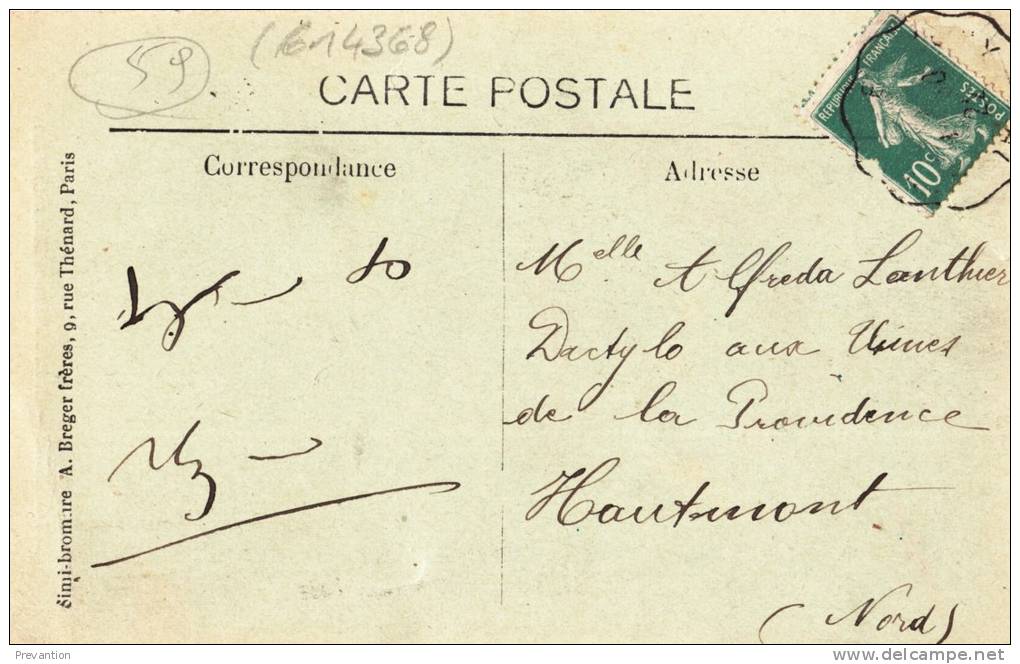 59
(E14368)
CARTE POSTALE
Correspondance
Adresse
RÉPUBLIQUE FRANÇAISE
POSTES
10c
Melle Alfreda Lanthier
Dactylo aux Usines
de la Providence
Hautmont
(Nord)
Simi-bromure A. Breger frères, 9, rue Thénard, Paris
Prevantion
www.delcampe.net